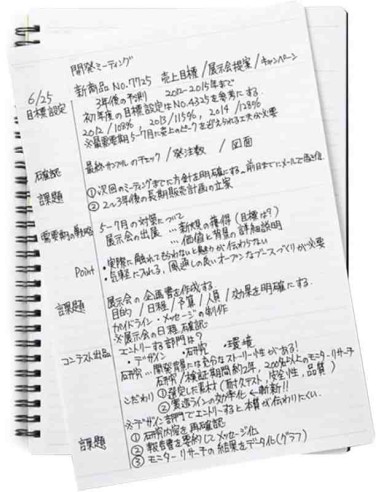 開発ミーティング
6/25 新商品 NO.7725 売上目標/展示会提案/キャンペーン
目標設定 3年後の予測 2012-2015年まで
初年度の目標設定はNO.4325を参考にする
2012/108%, 2013/115%, 2014/128%
※最需要期 5-7月に売上のピークを迎えられる工夫が必要
確認 最終サンプルのチェック/発注数/図面
課題 ①次回のミーティングまでに方針を明確にする…前日までにメールで配信
②2,3年後の長期販売計画の立案
需要期の戦略 5-7月の対策について
展示会の出展 …新規の獲得(目標は?)
…価値と背景の詳細説明
Point ・実際に触れてもらわないと魅力が伝わらない
・気軽に入れる,風通しの良いオープンなブースづくりが必要
課題 展示会の企画書を作成する
目的/日程/予算/人員/効果を明確にする
ガイドライン・メッセージの制作
※展示会の日程確認
コンテスト出品 エントリーする部門は?
・デザイン ・研究 ・環境
研究…開発背景には充分なストーリー性がある!
研究/検証期間約2年, 200名以上のモニターリサーチ
こだわり ①選定した素材(耐久テスト,安定性,品質)
②製造ラインの効率化 ←斬新!!
※デザイン部門でエントリーすると本質が伝わりにくい
課題 ①研究内容を再確認
②報告書を要約しメッセージ化
③モニターリサーチの結果をデータ化(グラフ)